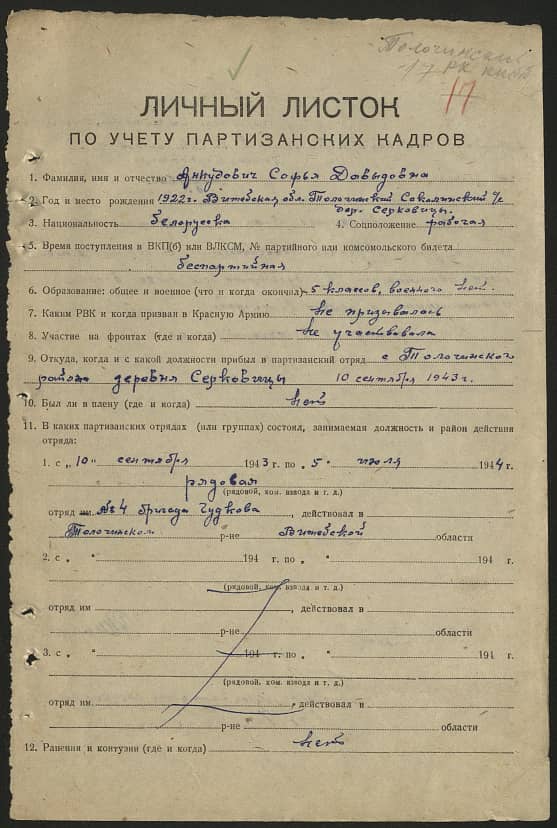 Толочинский
17 РК КП(б)Б
17
ЛИЧНЫЙ ЛИСТОК
ПО УЧЕТУ ПАРТИЗАНСКИХ КАДРОВ
1. Фамилия, имя и отчество Аннудович Софья Давыдовна
2. Год и место рождения 1922г. Витебская обл. Толочинский Соколинский с/с
дер. Серковицы.
3. Национальность белорусска 4. Соцположение рабочая
5. Время поступления в ВКП(б) или ВЛКСМ, № партийного или комсомольского билета
беспартийная
6. Образование: общее и военное (что и когда окончил) 5 классов, военного нет.
7. Каким РВК и когда призван в Красную Армию Не призывалась
8. Участие на фронтах (где и когда) Не участвовала
9. Откуда, когда и с какой должности прибыл в партизанский отряд с Толочинского
района деревня Серковицы 10 сентября 1943г.
10. Был ли в плену (где и когда) Нет
11. В каких партизанских отрядах (или группах) состоял, занимаемая должность и район действия
отряда:
1. с „10" сентября 1943 г. по „5" июля 1944 г.
рядовая
(рядовой, ком. взвода и т. д.)
отряд им. №4 бригада Гудкова, действовал в
Толочинском р-не Витебской области
2. с „ " 194 г. по „ " 194 г.
(рядовой, ком. взвода и т. д.)
отряд им , действовал в
р-не области
3. с „ " 194 г. по „ " 194 г.
(рядовой, ком. взвода и т. д.)
отряд им. , действовал в
р-не области
12. Ранения и контузии (где и когда) Нет